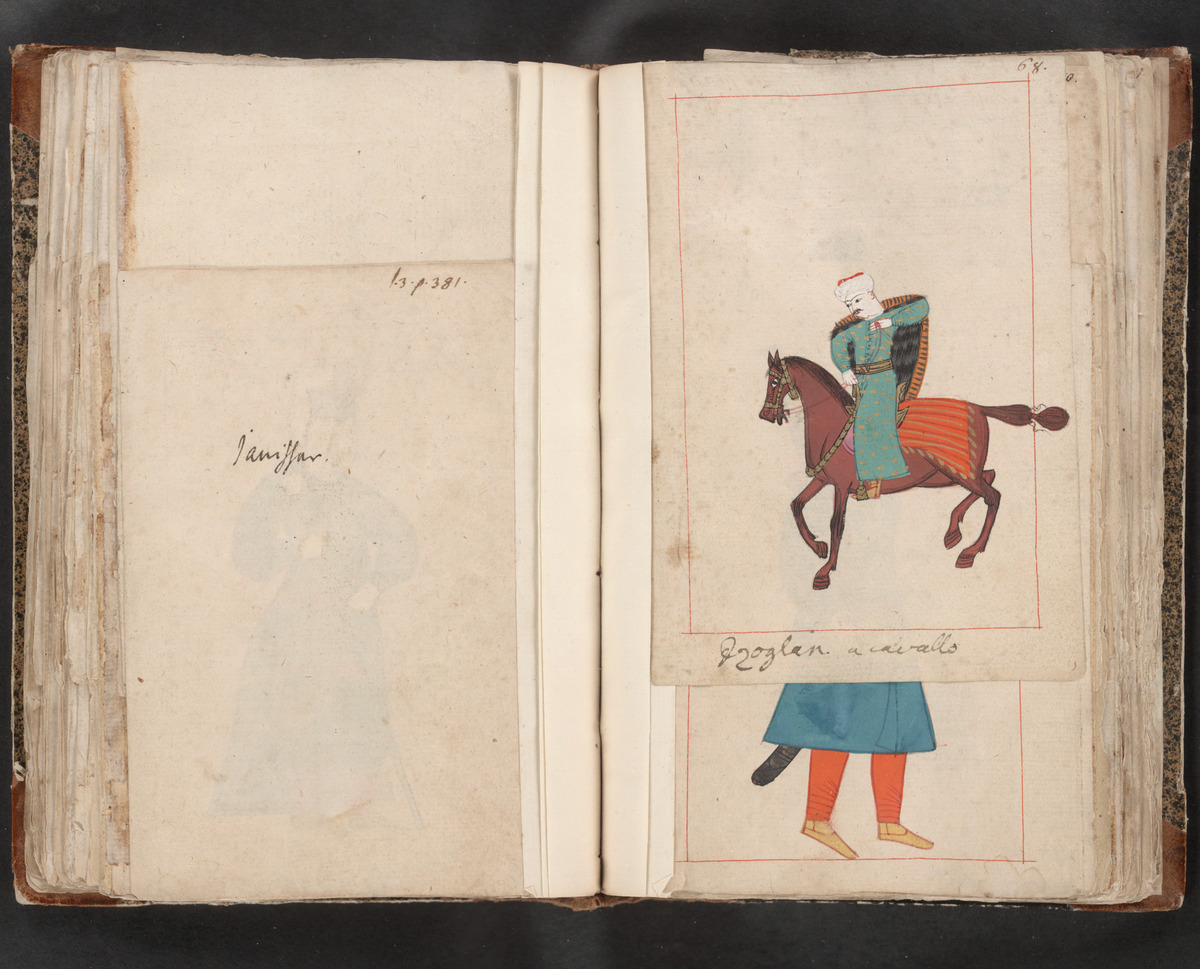 l.3.p.381.
Janissar.
68.
a cavallo